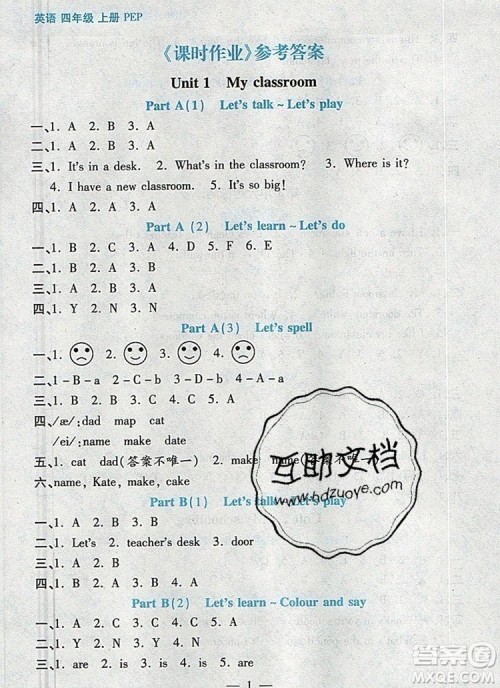 英语 四年级 上册 PEP
《课时作业》参考答案
Unit 1 My classroom
Part A(1) Let's talk ~ Let's play
一、1. A 2. B 3. A
二、1. A 2. B 3. A
三、1. It's in a desk. 2. What's in the classroom? 3. Where is it?
4. I have a new classroom. 5. It's so big!
四、1. A 2. A 3. A
Part A (2) Let's learn ~ Let's do
一、1. B 2. C 3. A 4. D 5. F 6. E
二、1. B 2. B 3. A 4. B 5. A
三、1. A 2. B 3. A 4. B
四、1. Y 2. N 3. N
Part A(3) Let's spell
一、1. 2. 3. 4.
二、1-B-a 2-B-b 3-B-b 4-A-a
三、1. B 2. A 3. B 4. A
四、/æ/:dad map cat
/ei/:name make date
五、1. cat dad(答案不唯一) 2. make name(答案不唯一)
六、name, Kate, make, cake
Part B(1) Let's talk ~ Let's play
一、1. A 2. B 3. B
二、1. Let's 2. teacher's desk 3. door
三、1. A 2. B 3. B
四、1. Y 2. N 3. Y 4. A 5. A
Part B(2) Let's learn ~ Colour and say
一、1. A 2. B 3. A 4. A
二、1. B 2. B 3. A
三、1. are 2. is 3. are 4. is 5. is
1
互助文档
www.hdzuoye.com
答案圈
MXQE.COM